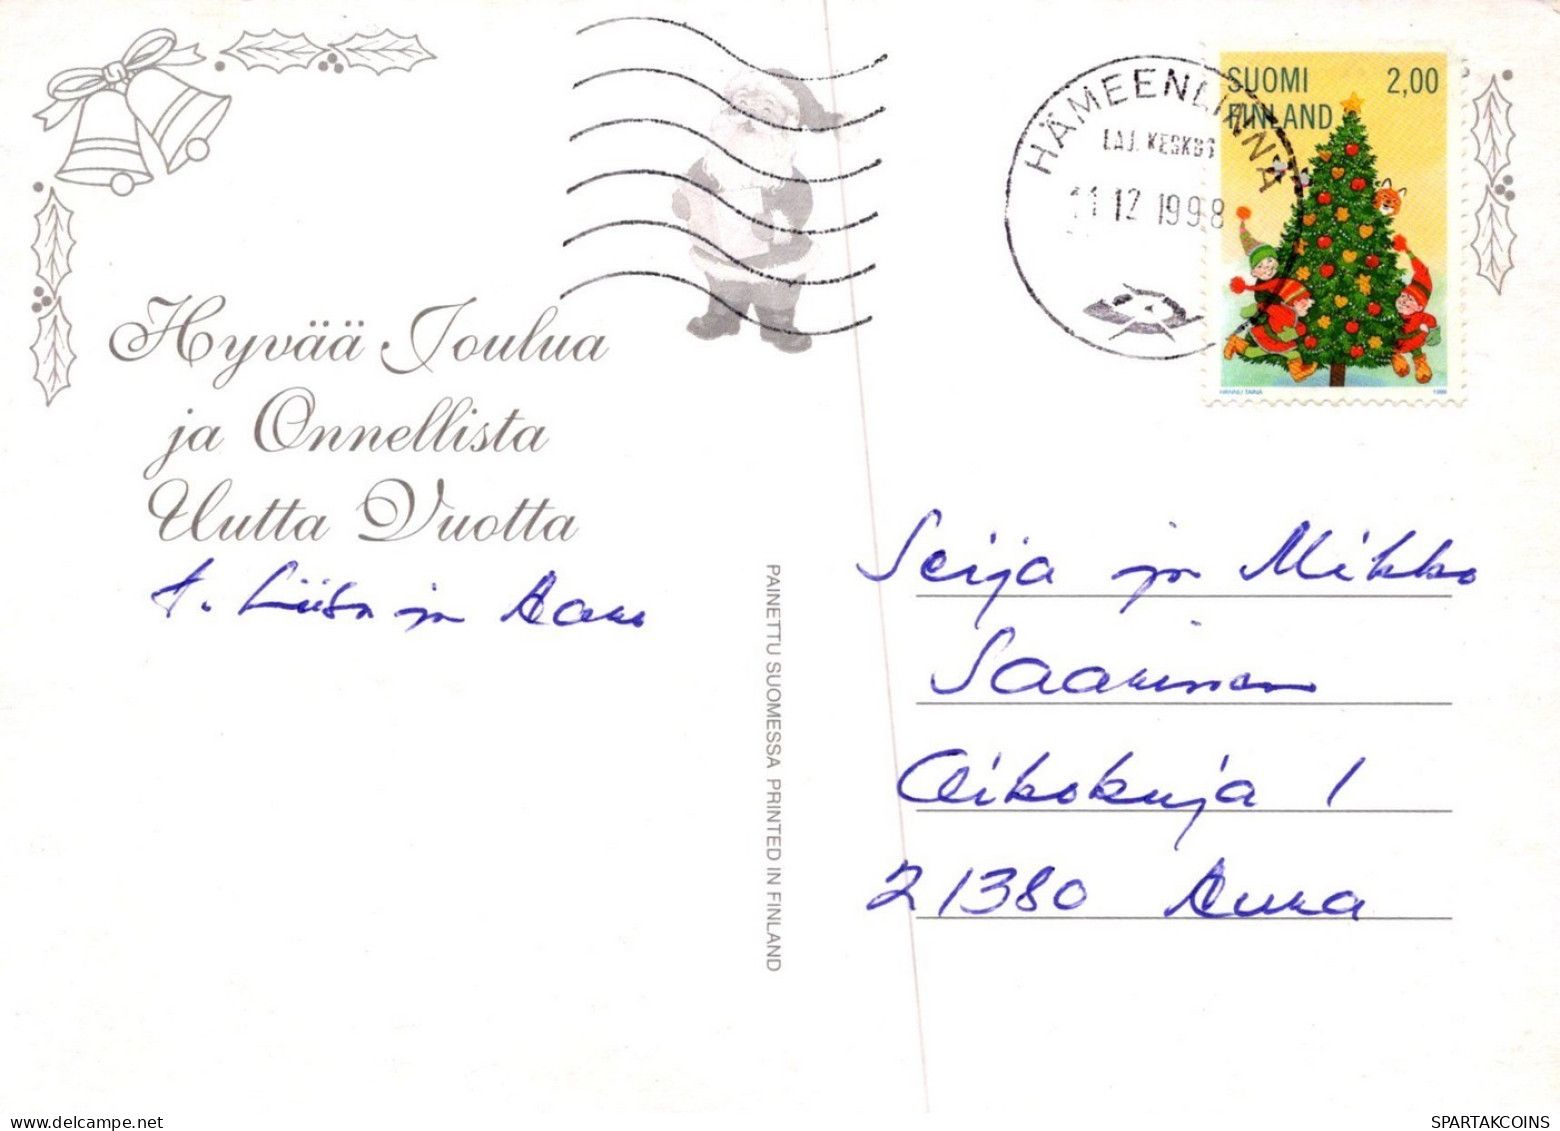 SUOMI 2,00
FINLAND
HÄMEENLINNA
LAJ. KESKUS
11 12 1998
HANNU TAINA 1998
Hyvää Joulua
ja Onnellista
Uutta Vuotta
t. Liisa ja
PAINETTU SUOMESSA PRINTED IN FINLAND
Seija ja Mikko
Saarinen
21380 Aura
SPARTAKCOINS